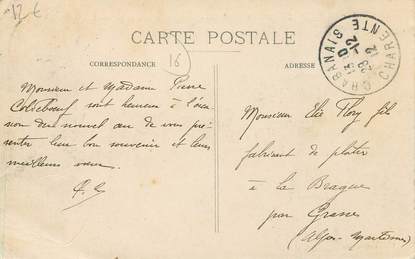 12 €
CARTE POSTALE
CORRESPONDANCE
16
ADRESSE
CHABANAIS
CHARENTE
Monsieur et Madame Pierre
sont heureux à l'occa
sion du nouvel an de vous pré
senter leur bon souvenir et leurs
meilleurs vœux
Monsieur Elie fils
fabricant de
à la Brague
par Grasse
(Alpes-Maritimes)